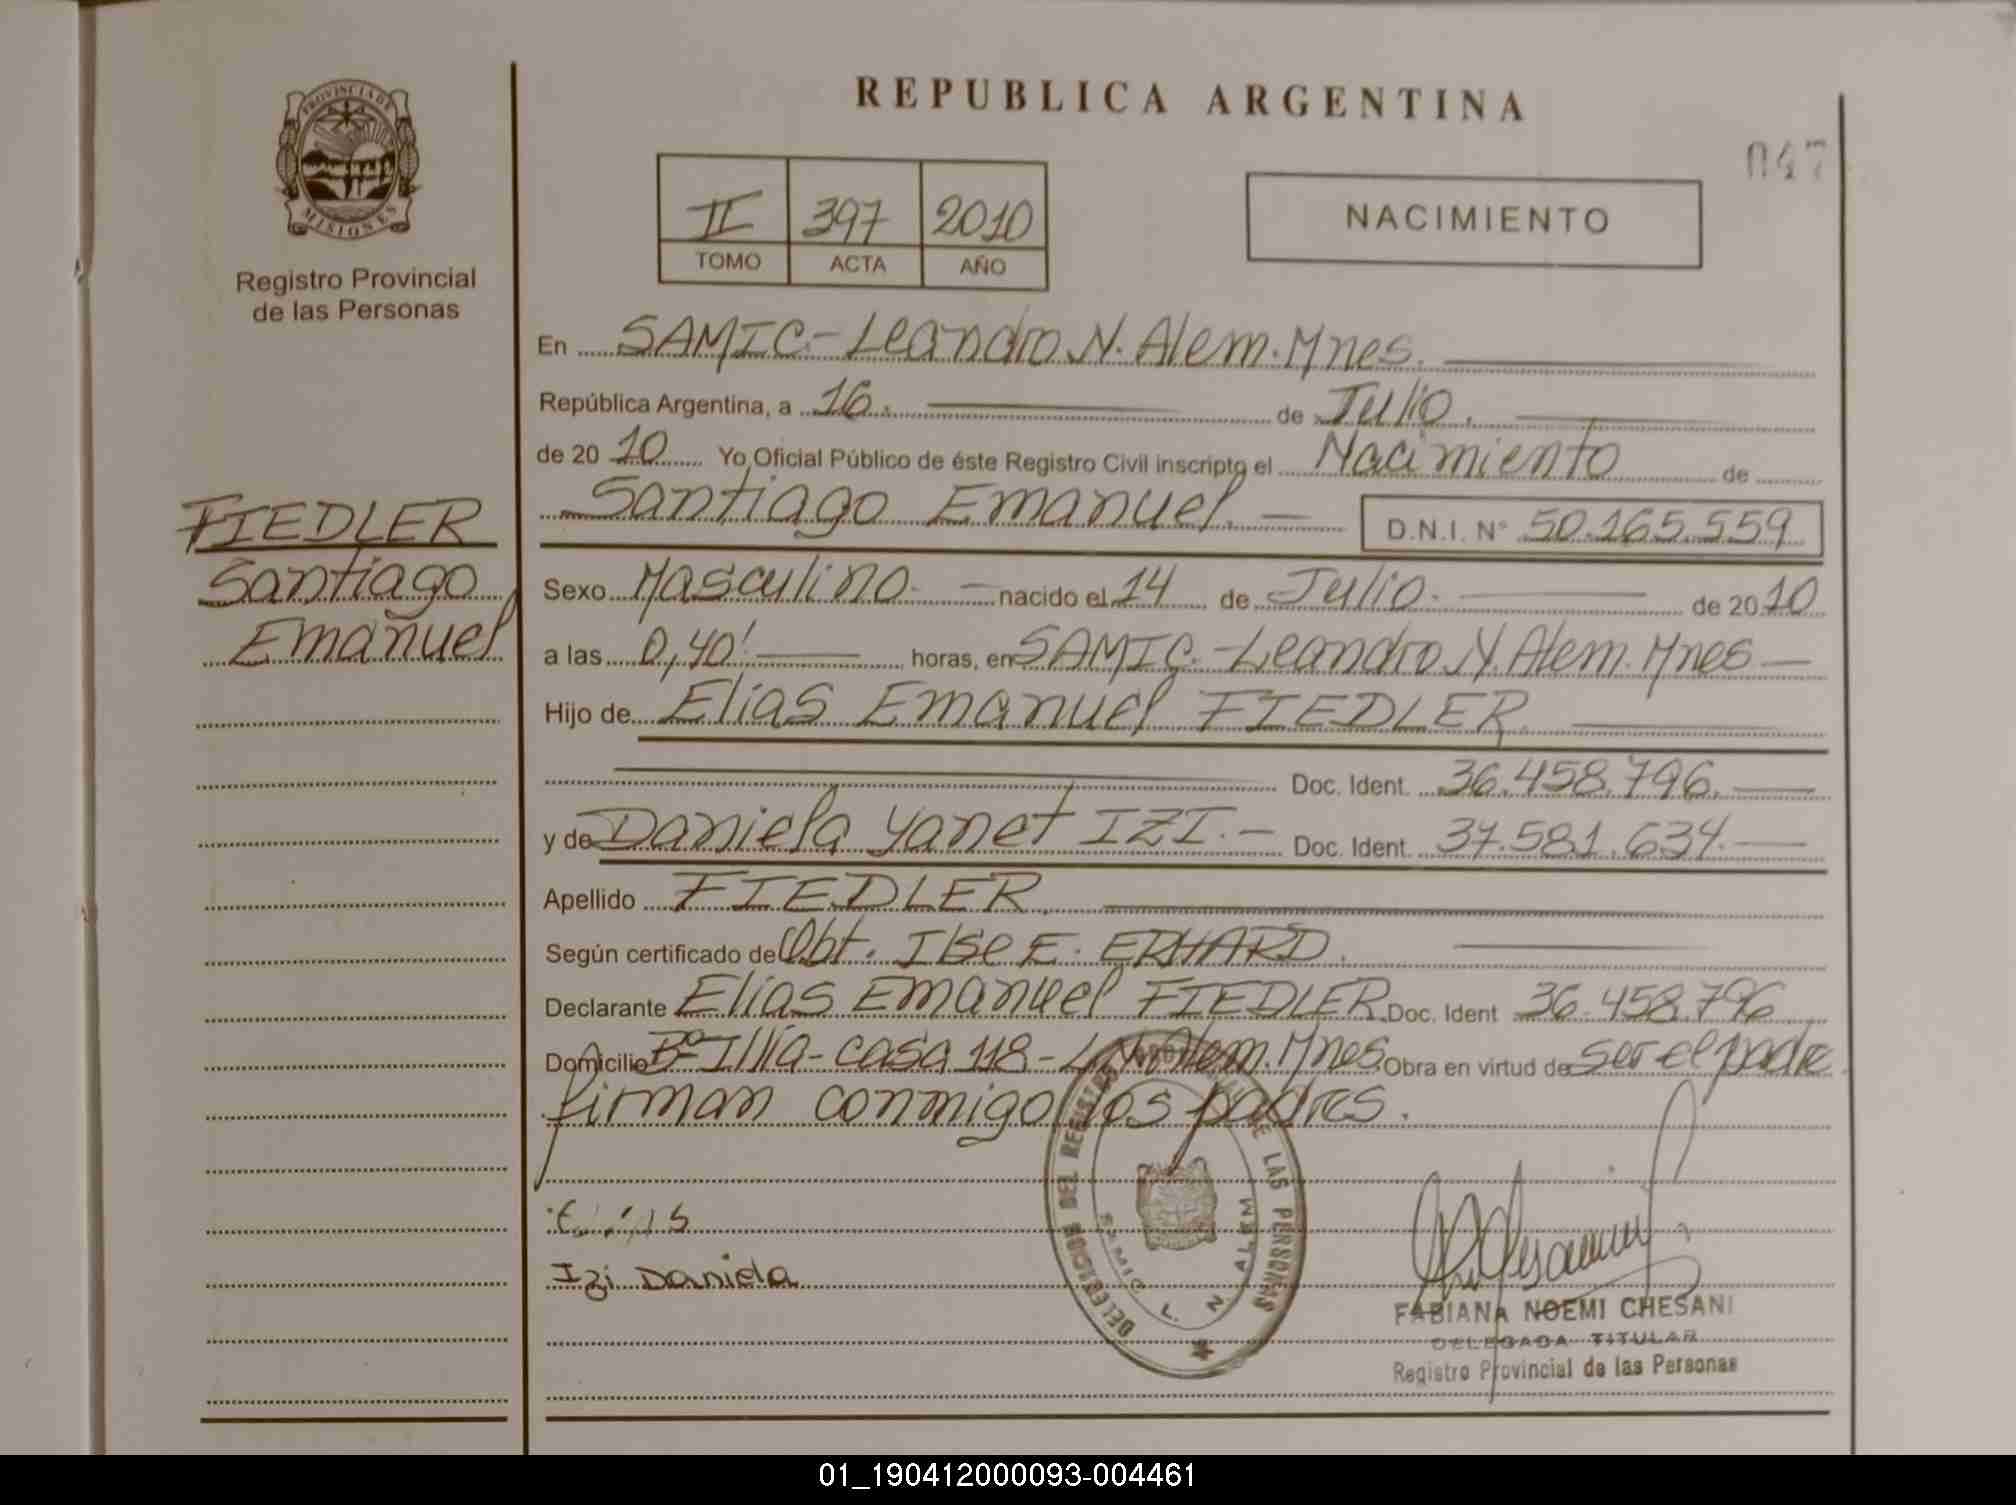 REPUBLICA ARGENTINA
047
PROVINCIA DE
MISIONES
Registro Provincial
de las Personas
II 397 2010
TOMO ACTA AÑO
NACIMIENTO
En SAMIC - Leandro N. Alem. Mnes.
República Argentina, a 16. de Julio.
de 2010 Yo Oficial Público de éste Registro Civil inscripto el Nacimiento de
Santiago Emanuel. D.N.I. Nº 50.165.559
FIEDLER
Santiago
Emanuel
Sexo Masculino. nacido el 14 de Julio. de 2010
a las 0,40' horas, en SAMIC. - Leandro N. Alem. Mnes
Hijo de Elias Emanuel FIEDLER.
Doc. Ident. 36.458.796.
y de Daniela Yanet IZI. - Doc. Ident. 37.581.634.
Apellido FIEDLER.
Según certificado de Obt. Ilse E. ERHARD.
Declarante Elias Emanuel FIEDLER. Doc. Ident 36.458.796
Domicilio Bº Illia - casa 118 - L.N. Alem. Mnes. Obra en virtud de ser el padre
firman conmigo los padres.
DELEGACION DEL REGISTRO PROVINCIAL DE LAS PERSONAS
SAMIC L. N. ALEM
Izi Daniela
FABIANA NOEMI CHESANI
DELEGADA TITULAR
Registro Provincial de las Personas
01_190412000093-004461